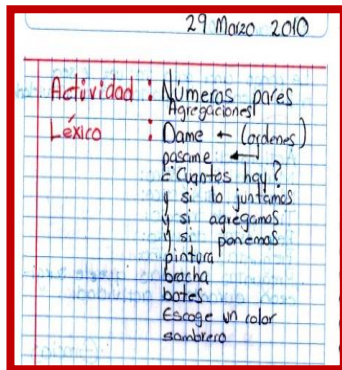 29 Marzo 2010
Actividad : Números pares
Agregaciones
Léxico : Dame ← (ordenes)
pasame ←
¿Cuantos hay?
y si lo juntamos
y si agregamos
y si ponemos
pintura
brocha
botes
Escoge un color
sombrero